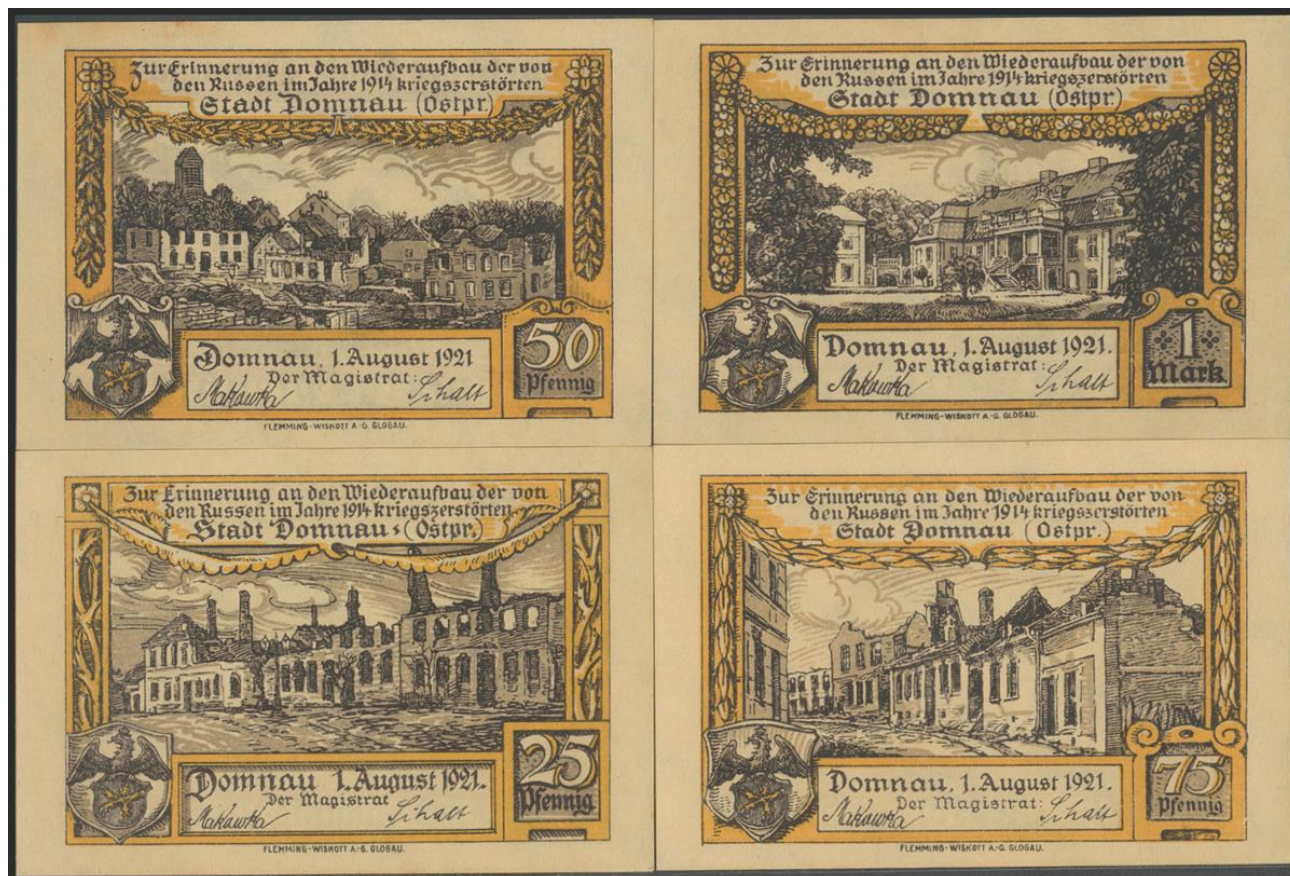 Zur Erinnerung an den Wiederaufbau der von
den Russen im Jahre 1914 kriegszerstörten
Stadt Domnau (Ostpr.)
Domnau, 1. August 1921
Der Magistrat:
50
Pfennig
FLEMMING-WISKOTT A.-G. GLOGAU.
Zur Erinnerung an den Wiederaufbau der von
den Russen im Jahre 1914 kriegszerstörten
Stadt Domnau (Ostpr.)
Domnau, 1. August 1921.
Der Magistrat:
1
Mark
FLEMMING-WISKOTT A.-G. GLOGAU.
Zur Erinnerung an den Wiederaufbau der von
den Russen im Jahre 1914 kriegszerstörten
Stadt Domnau (Ostpr.)
Domnau 1. August 1921.
Der Magistrat
25
Pfennig
FLEMMING-WISKOTT A.-G. GLOGAU.
Zur Erinnerung an den Wiederaufbau der von
den Russen im Jahre 1914 kriegszerstörten
Stadt Domnau (Ostpr.)
Domnau, 1. August 1921.
Der Magistrat:
75
Pfennig
FLEMMING-WISKOTT A.-G. GLOGAU.